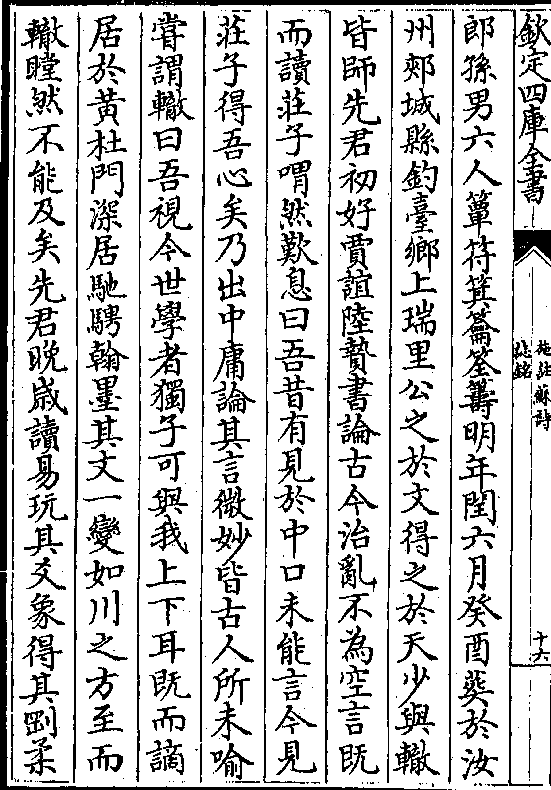 欽定四庫全書
施註蘇詩
誌銘
十六
郎孫男六人簞符箕籥筌籌明年閏六月癸酉葬於汝
州郟城縣釣臺鄉上瑞里公之於文得之於天少與轍
皆師先君初好賈誼陸贄書論古今治亂不為空言既
而讀莊子喟然歎息曰吾昔有見於中口未能言今見
莊子得吾心矣乃出中庸論其言微妙皆古人所未喻
嘗謂轍曰吾視今世學者獨子可與我上下耳既而謫
居於黃杜門深居馳騁翰墨其文一變如川之方至而
轍瞠然不能及矣先君晚歲讀易玩其爻象得其剛柔